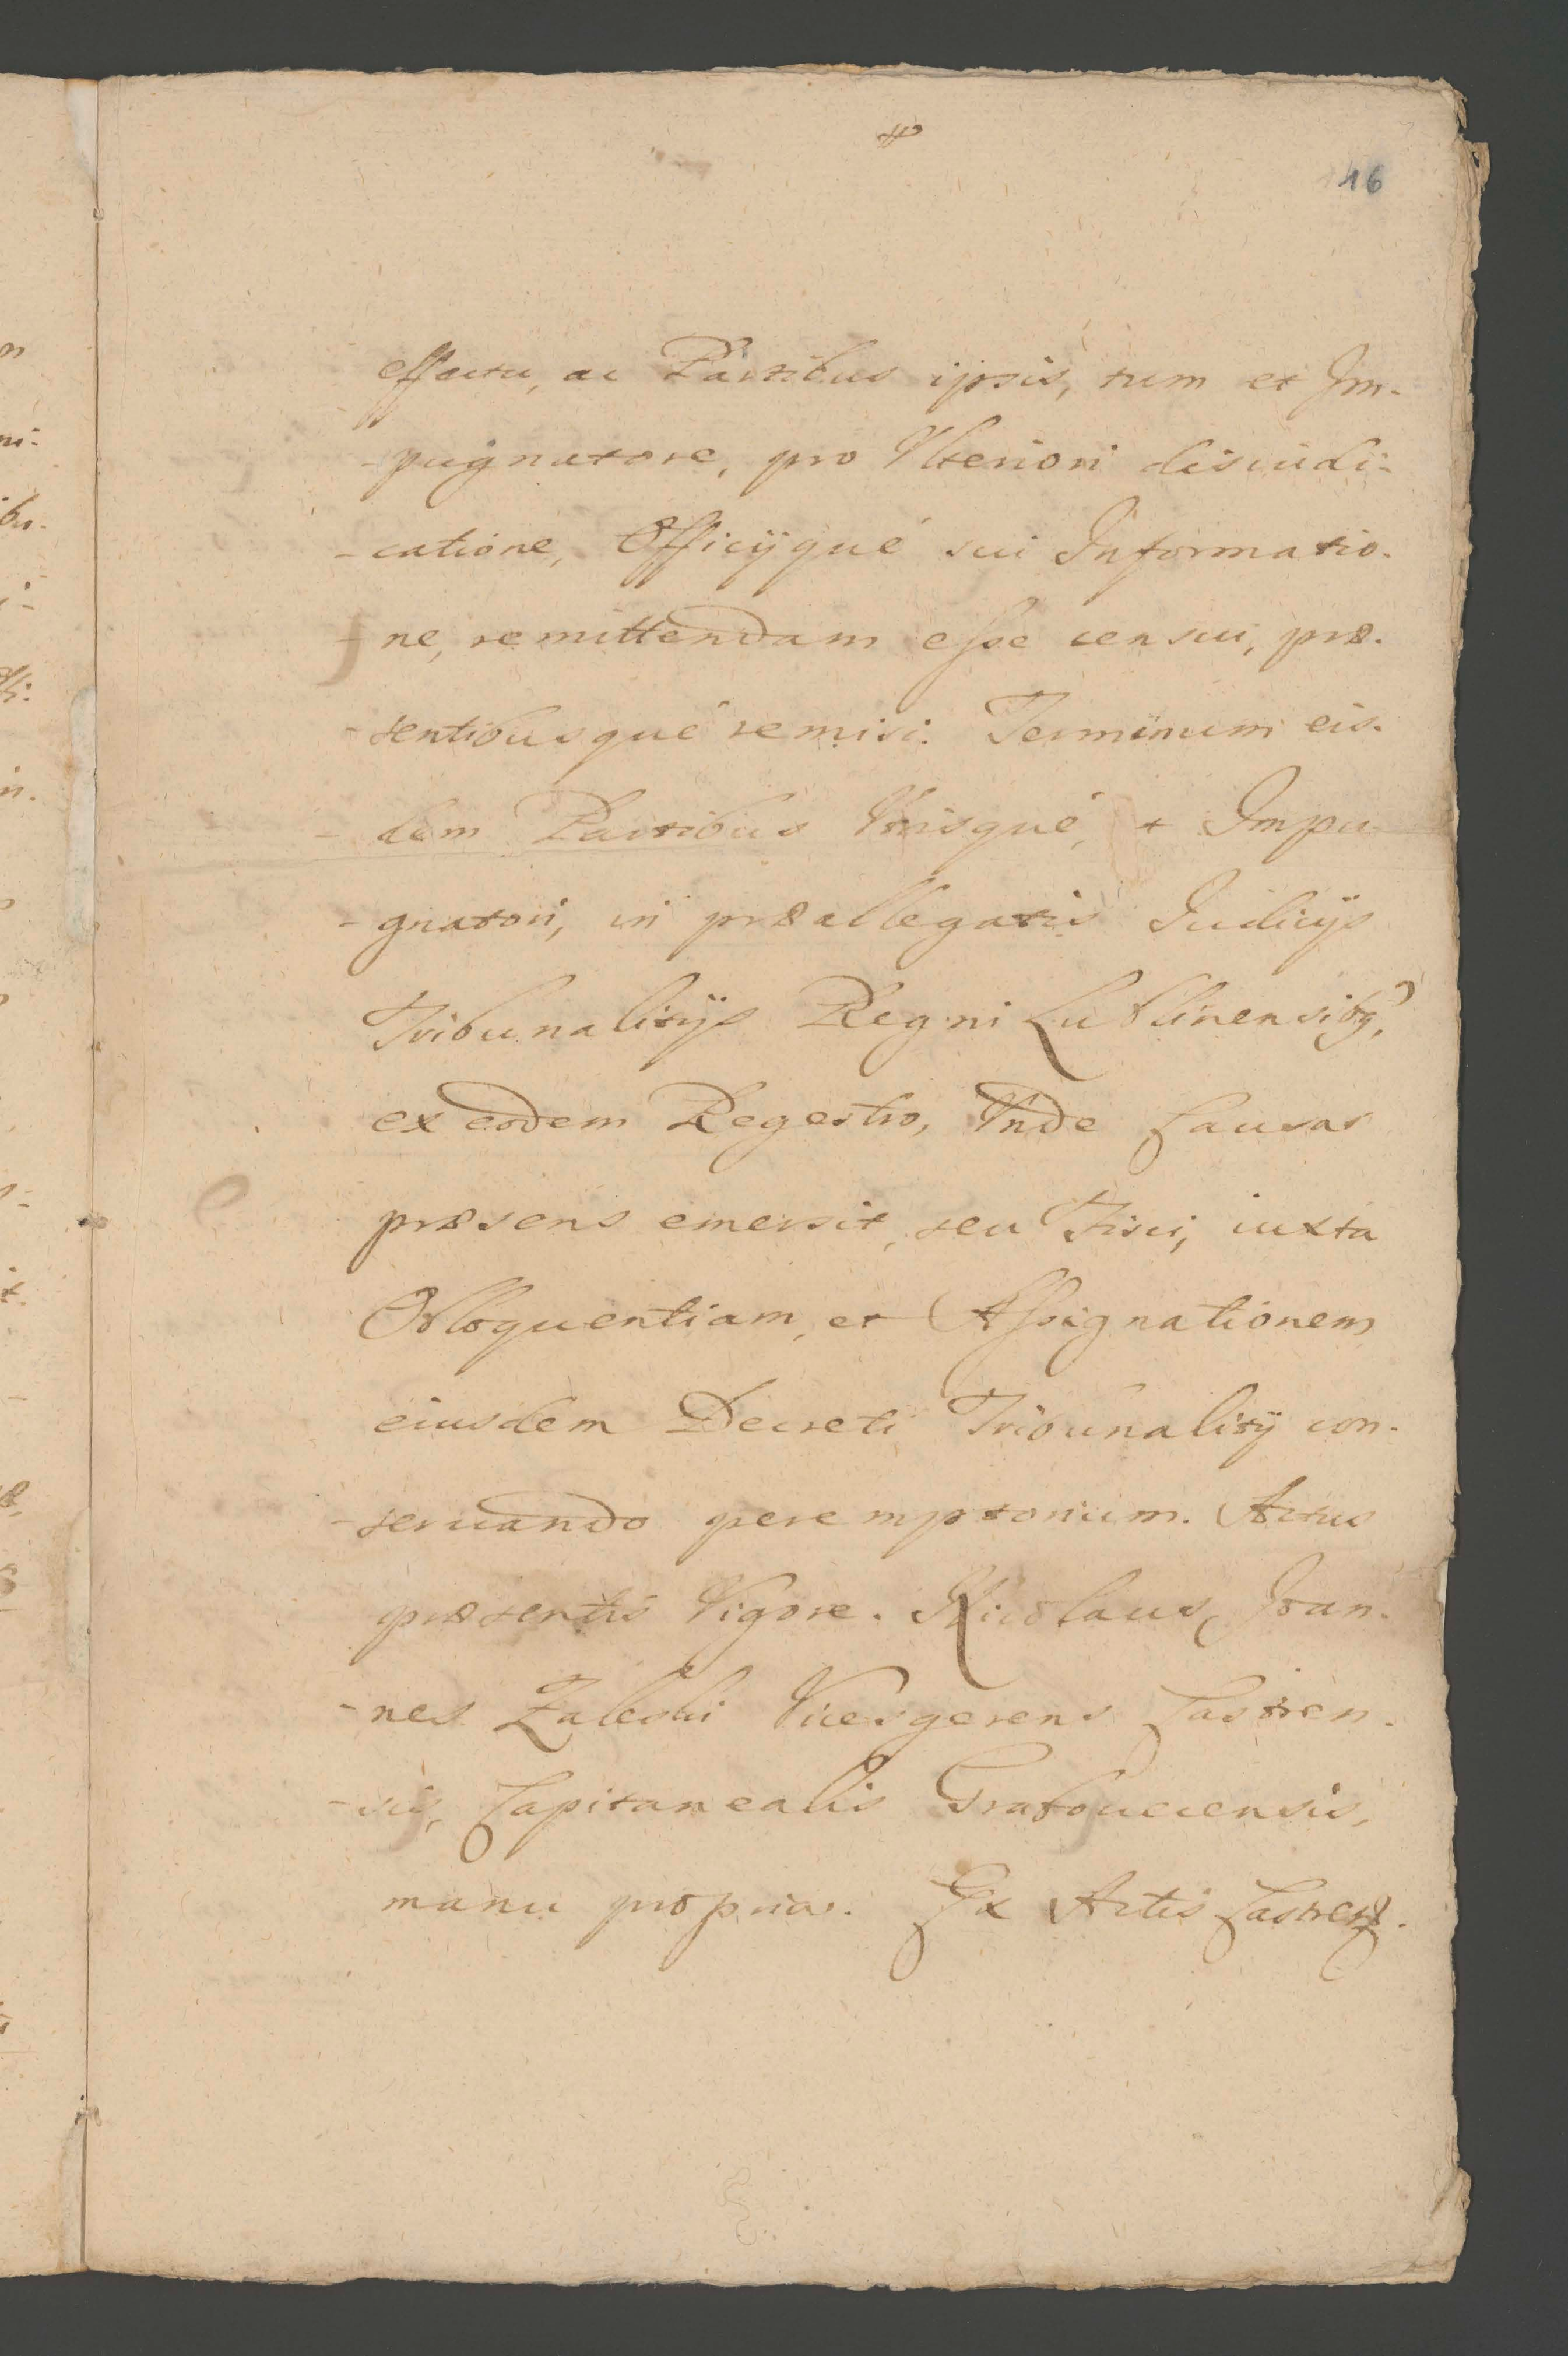 46
effectu, ac Partibus ipsis, tum et Im-
-pugnatore, pro Ulteriori disiudi-
-catione, Officijque sui Informatio-
-ne, remittendam esse censui, præ-
-sentibusque remisi. Terminum eis-
-dem Partibus Utrisque, et Impu-
-gnatori, in præallegatis Judicijs
Tribunalitijs Regni Lublinensibq,
ex eodem Regestro, Unde Causa
præsens emersit, seu Fisci, iuxta
Obloquentiam, et Assignationem
eiusdem Decreti Tribunalitij con-
-seruando peremptorium. Actus
præsentis Vigore. Nicolaus, Joan-
-nes Zaleski Vicesgerens Castren-
-sis, Capitanealis Grabouecensis,
manu propria. Ex Actis Castren.